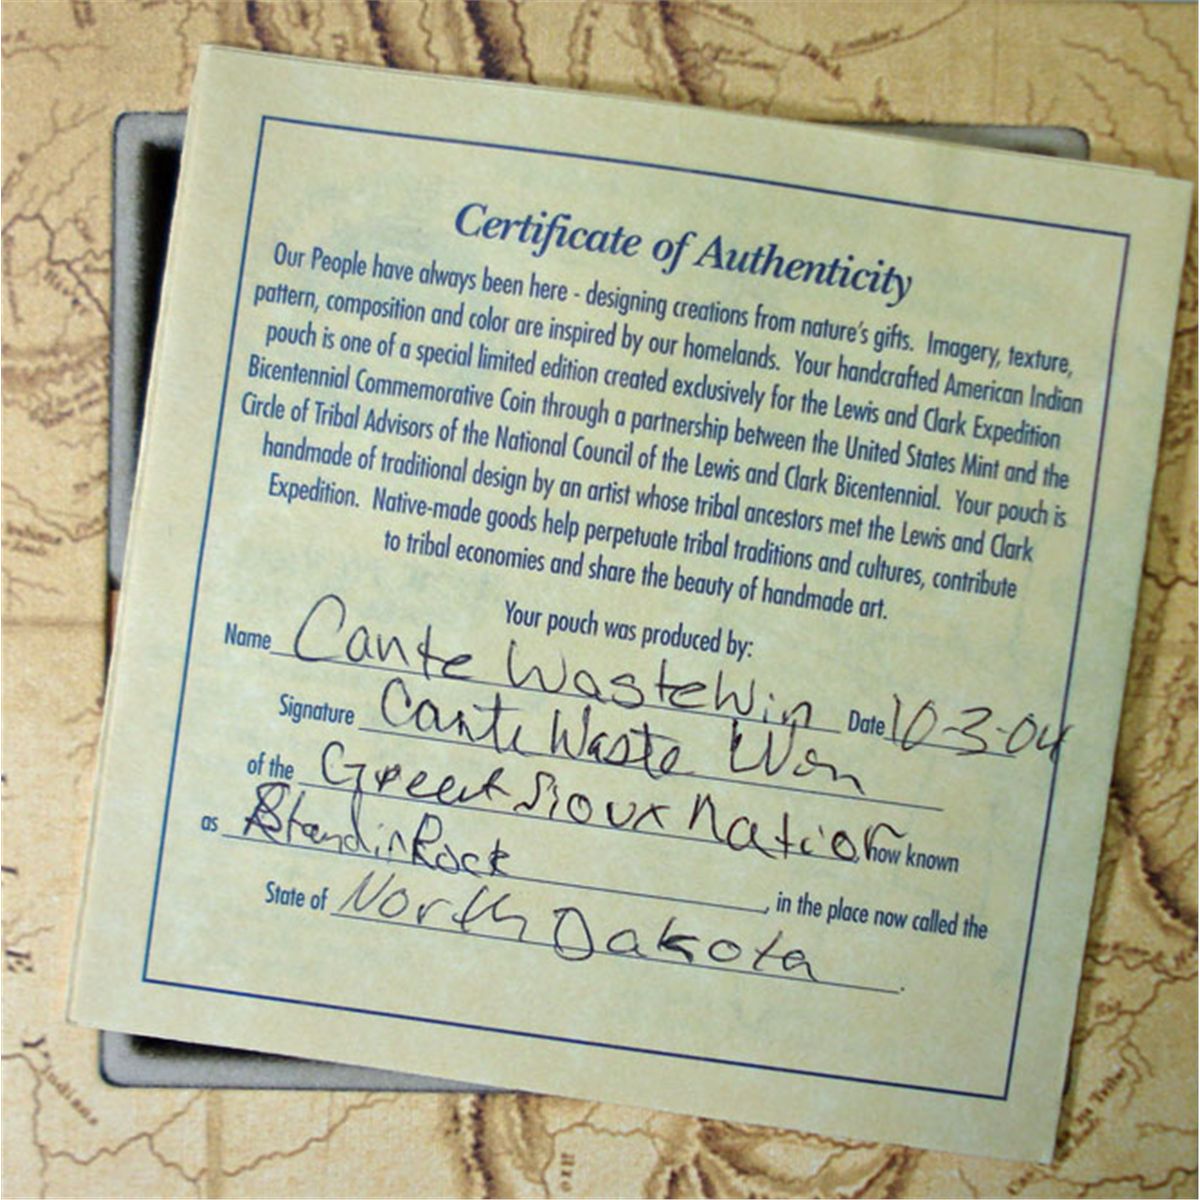 Certificate of Authenticity
Our People have always been here - designing creations from nature's gifts. Imagery, texture,
pattern, composition and color are inspired by our homelands. Your handcrafted American Indian
pouch is one of a special limited edition created exclusively for the Lewis and Clark Expedition
Bicentennial Commemorative Coin through a partnership between the United States Mint and the
Circle of Tribal Advisors of the National Council of the Lewis and Clark Bicentennial. Your pouch is
handmade of traditional design by an artist whose tribal ancestors met the Lewis and Clark
Expedition. Native-made goods help perpetuate tribal traditions and cultures, contribute
to tribal economies and share the beauty of handmade art.
Your pouch was produced by:
Name Cante WasteWin Date 10-3-04
Signature Cante Waste Won
of the Greeat Sioux Nation, now known
as StandinRock, in the place now called the
State of North Dakota.